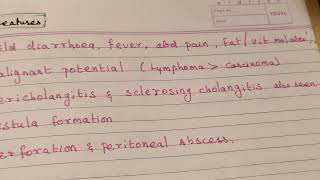 eatures
ild diarrhoea, fever, abd pain, Fat/vit malabs
alignant potential (lymphoma > carcinoma)
ericholangitis & sclerosing cholangitis also seen
istula formation
erforation & peritoneal abscess.